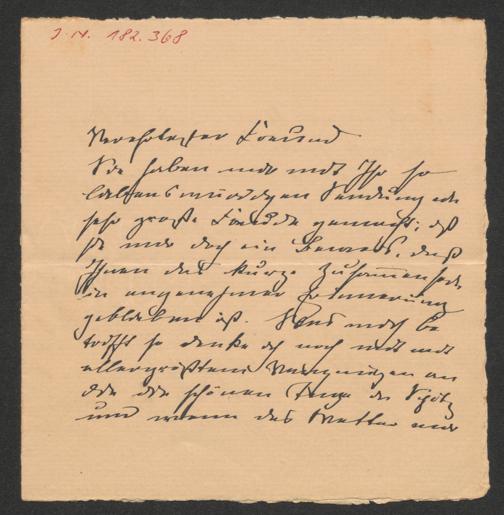 J. N. 182.368
Verehrtester Freund
Sie haben mir mit Ihr so
liebenswürdigen Sendung eine
sehr große Freude gemacht; ist
sie mir doch ein Beweis, daß
Ihnen das kurze Zusammensein
in angenehmer Erinnerung
geblieben ist. Was mich be
trifft so denke ich noch mit
allergrößtem Vergnügen an
die schönen Tage
und wenn das Wetter